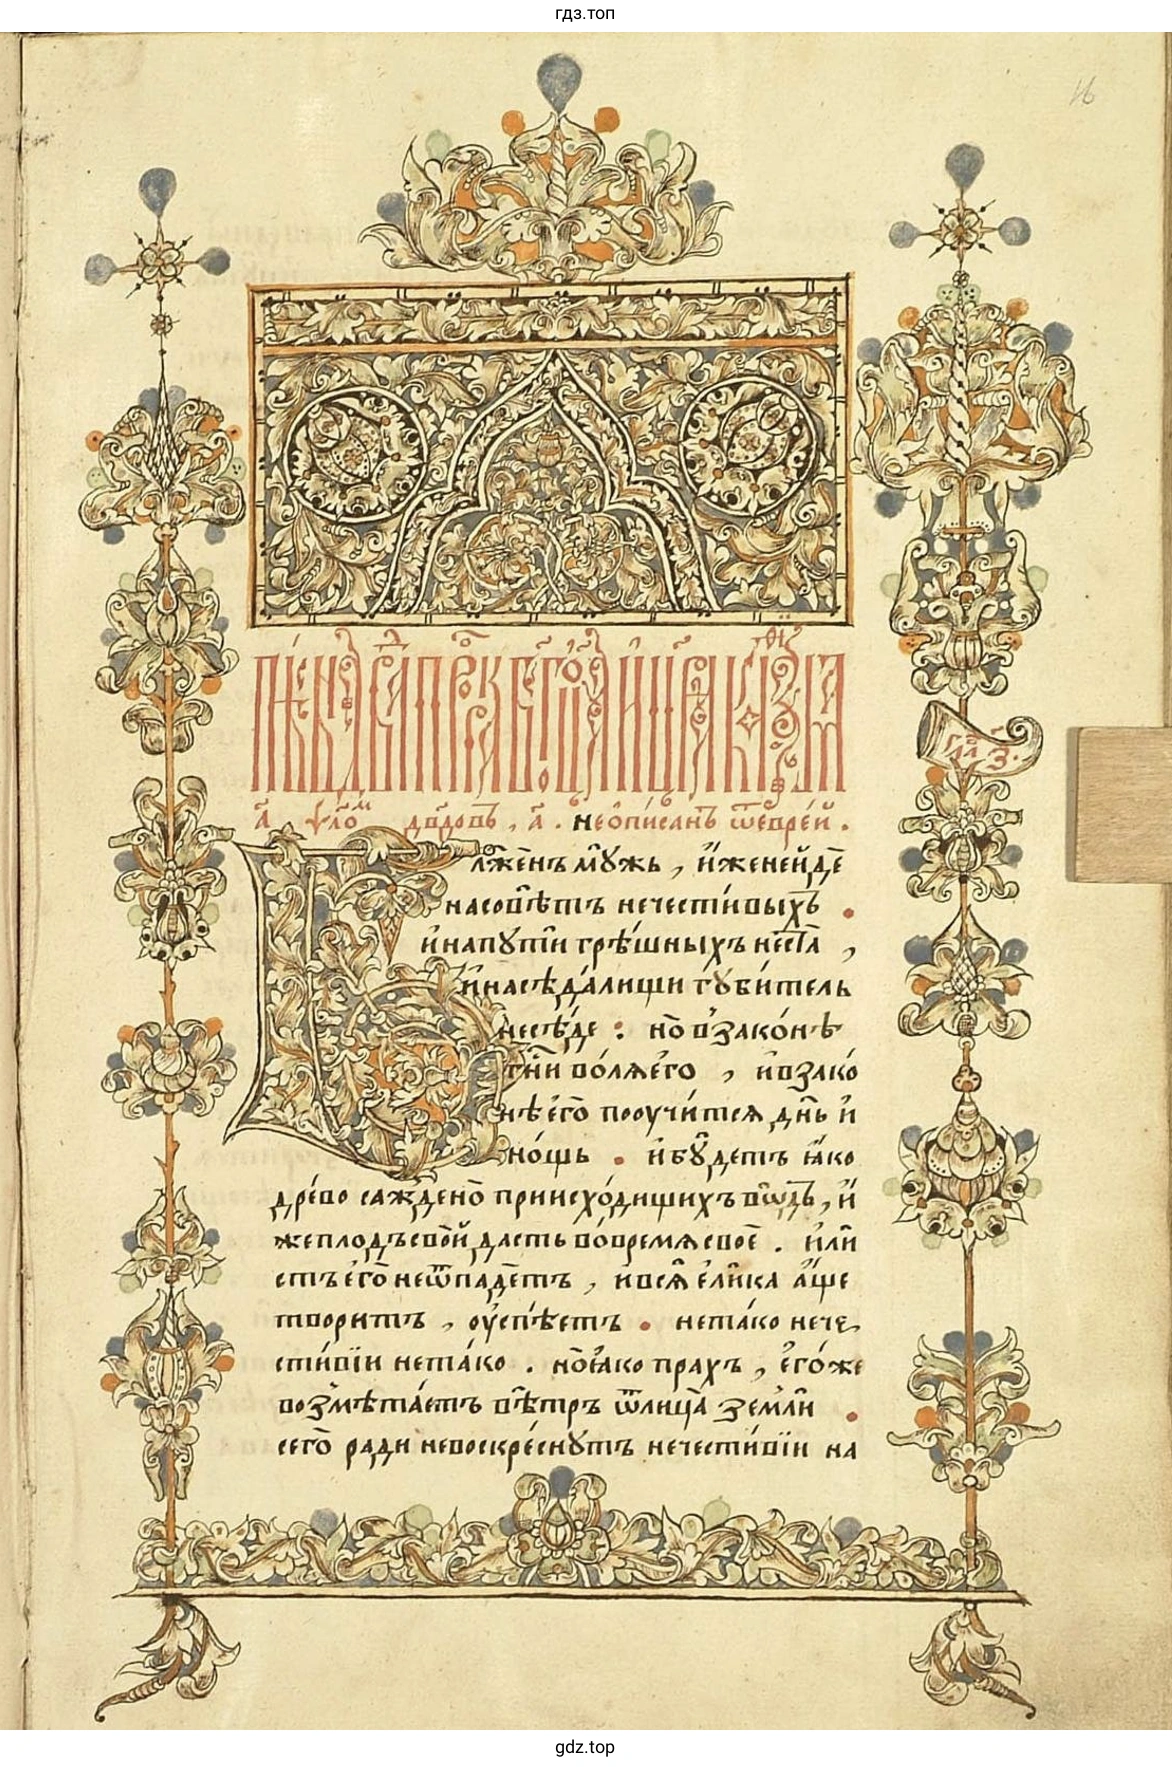 гдз.топ
16
Пѣсна́ сла́ прⷪ҇рка бг҃ог҃ла и҆ цр҃ѧ
а҃ ѱло́м дв҃довъ , а҃ . неѡ҆писа́нъ ѿ е҆врѐи .
гла҃ з҃ .
Бл҃же́нъ мꙋ́жь , и҆́же не и҆́де
на совѣ́тъ нечести́выхъ .
и҆ на пꙋтѝ грѣ́шныхъ не ста̀ ,
и҆ на сѣда́лищи гꙋби́тель
не сѣ́де : но̀ в̾ зако́нѣ
гн҃и во́лѧ є҆го̀ , и҆ в зако
нѣ є҆го̀ поѹчи́тсѧ дн҃ь и҆
но́щь . и҆ бꙋ́детъ ꙗ҆́ко
дре́во сажде́но при и҆схо́дищихъ во́дъ , и҆́
же пло́дъ сво́й да́сть во вре́мѧ своѐ . и҆ ли
стъ є҆го̀ не ѿпаде́тъ , и҆ всѧ̑ є҆ли́ка а҆́ще
твори́тъ , ѹ҆спѣ́етъ . не та́ко нече
сти́вїи не та́ко . но̀ ꙗ҆́ко пра́хъ , є҆го́же
возмѣта́етъ вѣ́тръ ѿ лица̀ землѝ .
сего̀ ра́ди не воскре́снꙋтъ нечести́вїи на
gdz.top